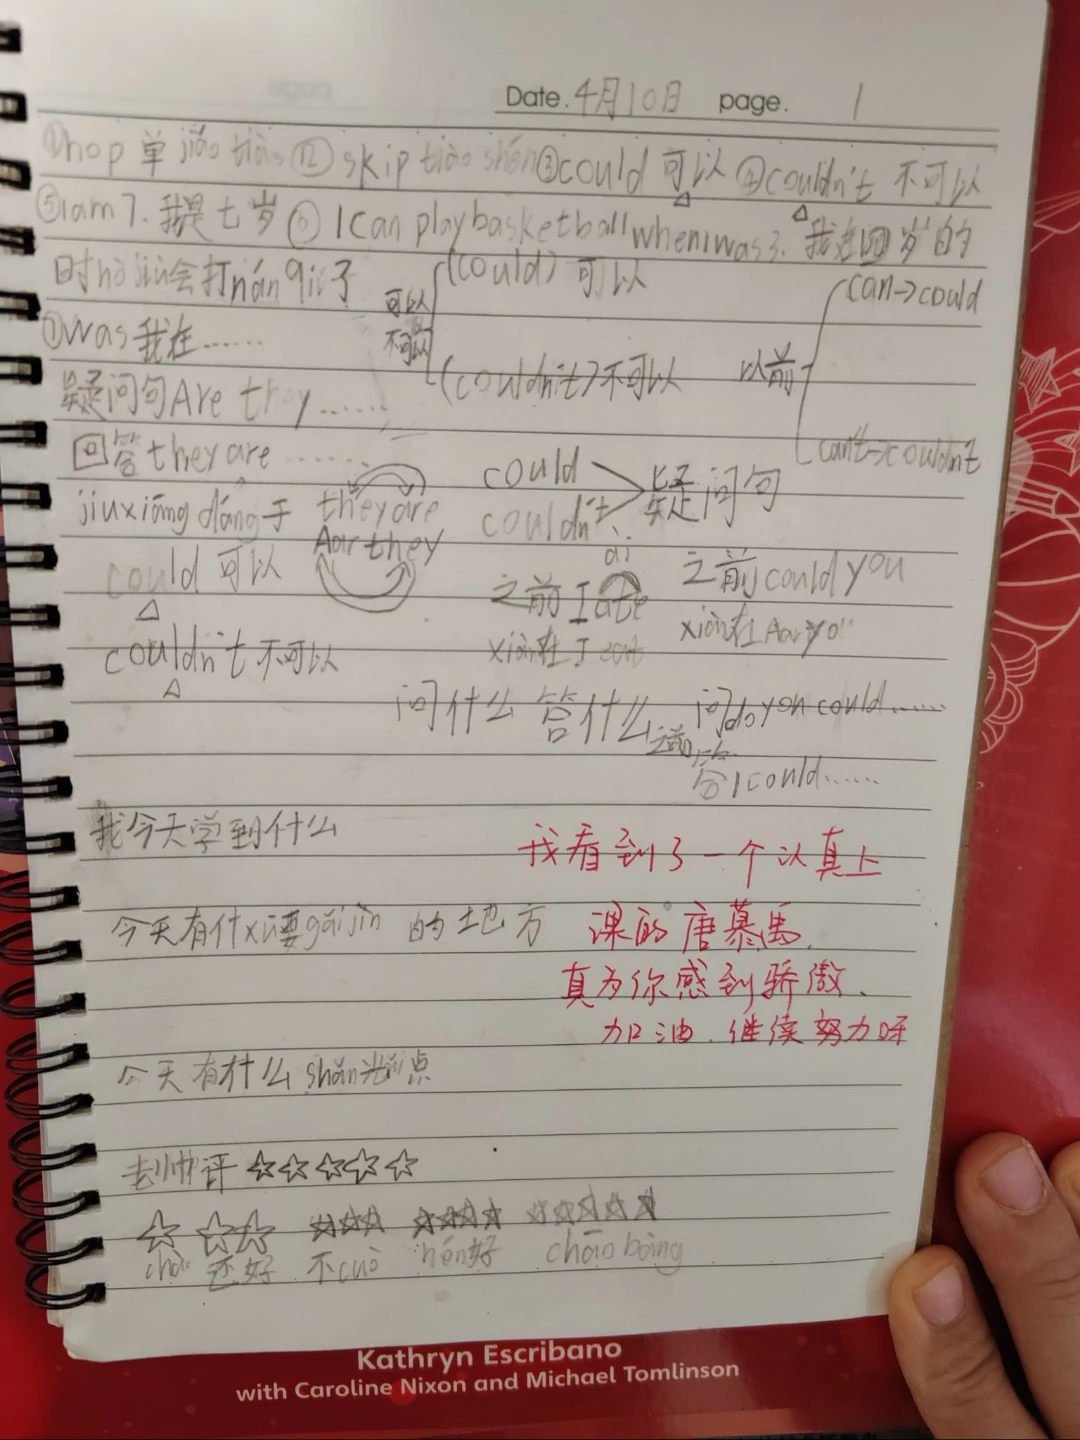 Date. 4月10日 page. 1
①hop 单jiǎo tiào ② skip tiào shén ③could 可以 ④couldn't 不可以
⑤I am 7. 我是七岁 ⑥ I can play basketball when I was 3. 我在四岁的
时hò jiù会打nán qiú子
可以
不可以
(could) 可以
(couldn't) 不可以
以前
can→could
can't→couldn't
⑦was 我在……
疑问句 Are they……
回答 they are……
jiu xiāng dāng于
they are
Aar they
could
couldn't
疑问句
could 可以
couldn't 不可以
ai
之前 I ate
xiàn在 I eat
之前 could you
xiàn在 Aar yo
问什么 答什么
问 do you could……
之前
答 I could……
我今天学到什么
我看到了一个认真上
课的唐慕马.
真为你感到骄傲、
加油.继续努力呀
今天有什xu要gǎi jìn 的地方
今天有什么 shǎn光点
老帅评 ☆☆☆☆☆
☆ ☆☆ ☆☆☆ ☆☆☆☆ ☆☆☆☆☆
还好 不cuò hěn好 chāo bàng
Kathryn Escribano
with Caroline Nixon and Michael Tomlinson